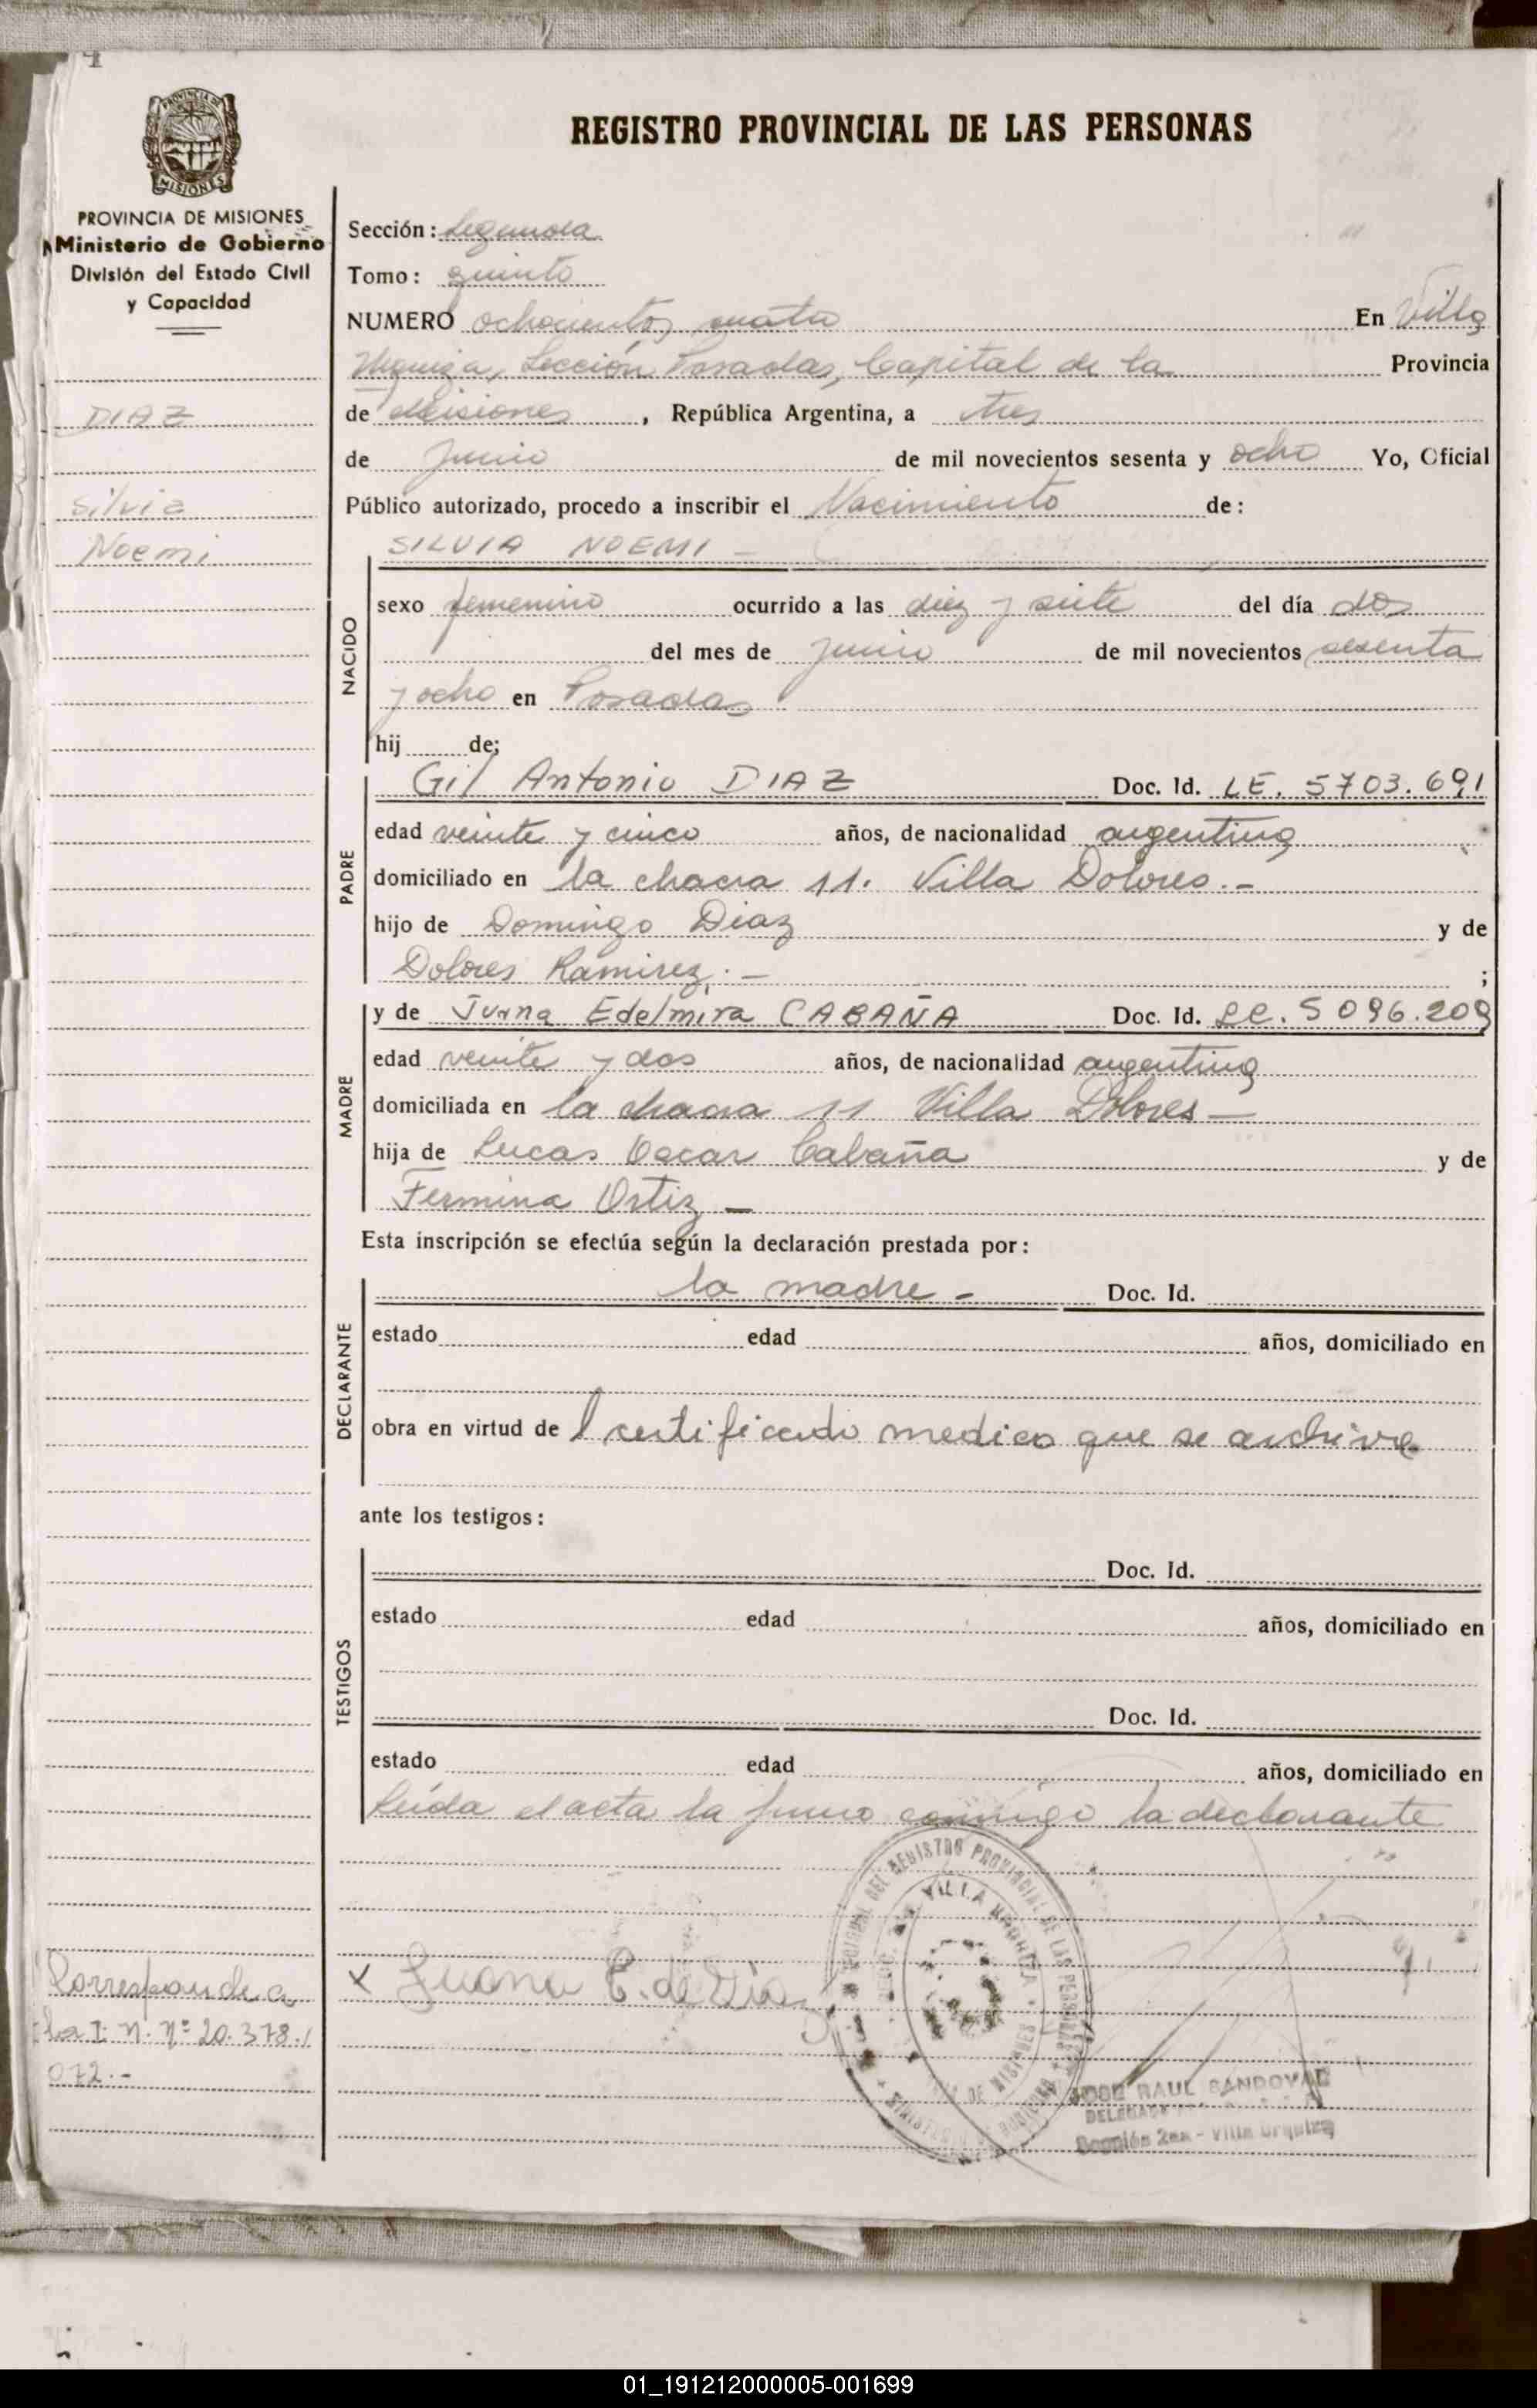 4
REGISTRO PROVINCIAL DE LAS PERSONAS
PROVINCIA DE
MISIONES
PROVINCIA DE MISIONES
Ministerio de Gobierno
División del Estado Civil
y Capacidad
DIAZ
Silvia
Noemi
Sección: Segunda
Tomo: quinto
NUMERO ochocientos cuatro En Villa
Urquiza, Sección Posadas, Capital de la Provincia
de Misiones, República Argentina, a tres
de Junio de mil novecientos sesenta y ocho Yo, Oficial
Público autorizado, procedo a inscribir el Nacimiento de:
SILVIA NOEMI -
NACIDO
sexo femenino ocurrido a las diez y siete del día dos
del mes de Junio de mil novecientos sesenta
y ocho en Posadas
hij de;
PADRE
Gil Antonio DIAZ Doc. Id. LE. 5703.691
edad veinte y cinco años, de nacionalidad argentina
domiciliado en la chacra 11. Villa Dolores.-
hijo de Domingo Diaz y de
Dolores Ramirez.- ;
MADRE
y de Juana Edelmira CABAÑA Doc. Id. LC. 5096.209
edad veinte y dos años, de nacionalidad argentina
domiciliada en la chacra 11 Villa Dolores-
hija de Lucas Oscar Cabaña y de
Fermina Ortiz -
Esta inscripción se efectúa según la declaración prestada por:
DECLARANTE
la madre - Doc. Id.
estado edad años, domiciliado en
obra en virtud de l certificado medico que se archiva
ante los testigos:
TESTIGOS
Doc. Id.
estado edad años, domiciliado en
Doc. Id.
estado edad años, domiciliado en
Leída el acta la firma conmigo la declarante
x Juana C. de Diaz
Corresponde a
la I. N. Nº 20.378.
072.-
DEL REGISTRO PROVINCIAL DE LAS PERSONAS
VILLA URQUIZA
DE MISIONES
JOSE RAUL SANDOVAL
DELEGADO
Sección 2da - Villa Urquiza
01_191212000005-001699